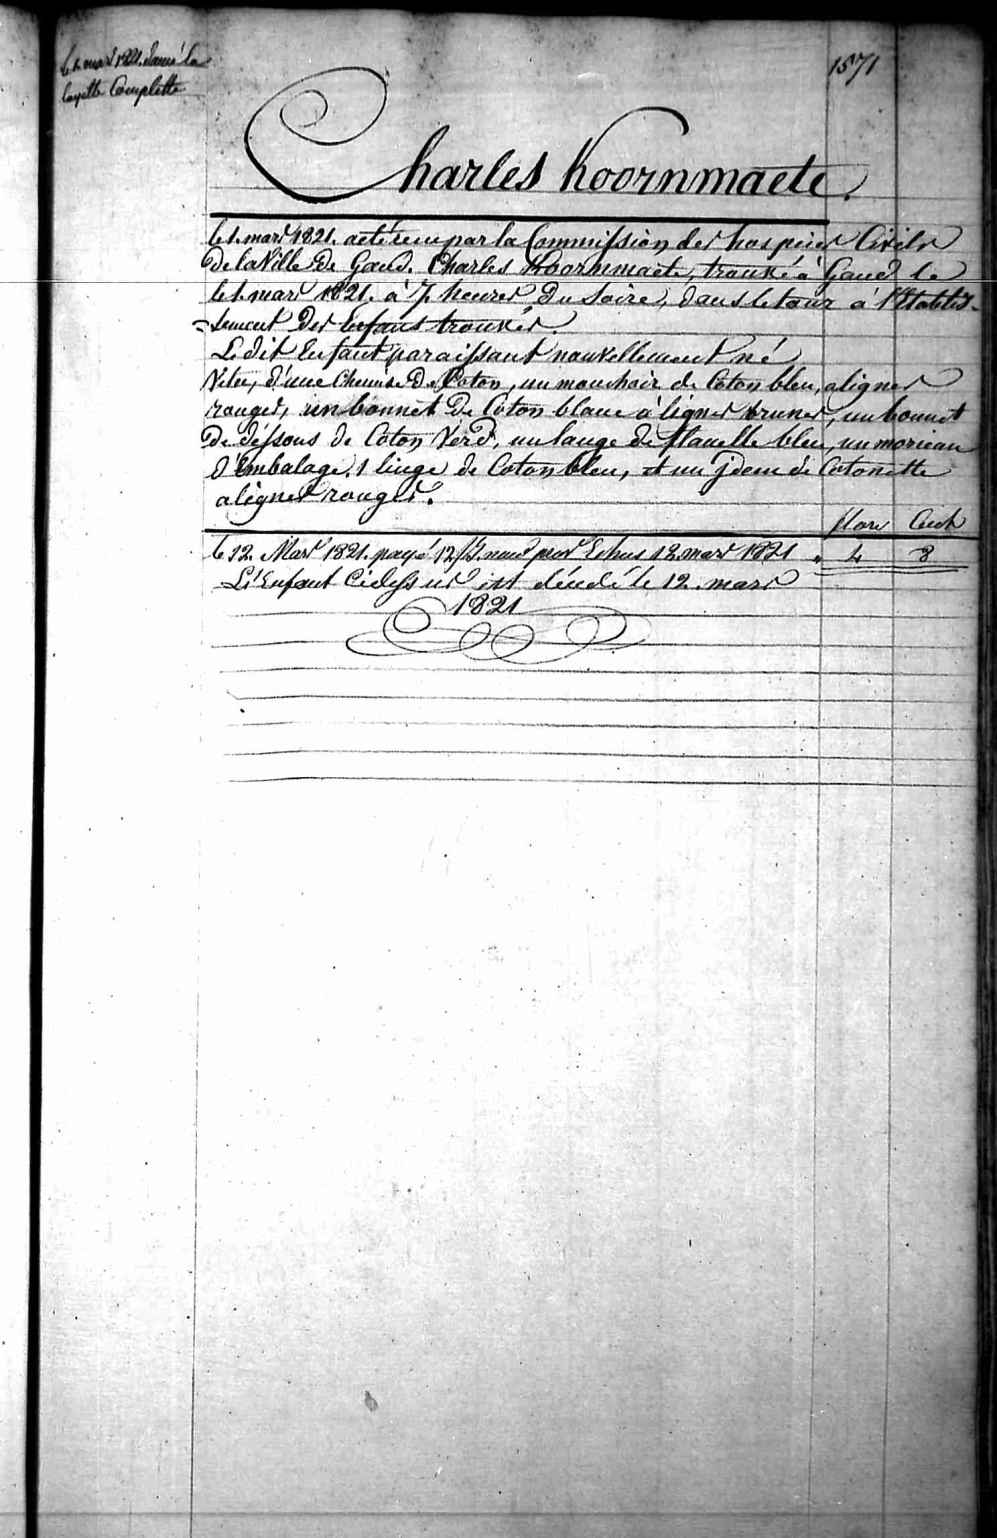 le 1. mars 1821. donné la
layette Complette
1571
Charles Koornmaete.
le 1. mars 1821. a eté recu par la Commission des hospices Civils
De la Ville De Gand. Charles Koornmaete, trouvé à Gand le
le 1. mars 1821. à 7 heures Du Soire, dans le tour à l'Etablis-
=sement Des Enfans trouvés.
Le dit Enfant paraissant nouvellement né
Vetu, d'une Chemise De Coton, un mouchoir de Coton bleu, a lignes
rouges, un bonnet De Coton blanc à lignes brunes, un bonnet
De dessous de Coton Verd, un lange de flanelle bleu, un morceau
d'Embalage, 1 linge de Coton bleu, et un jdem de Cotonette
a lignes rouges.
flors Cents
le 12. Mars 1821. payé 12 Echus 12. mars 1821 " 4 8
L'Enfant Cidessus est décedé le 12. mars
1821